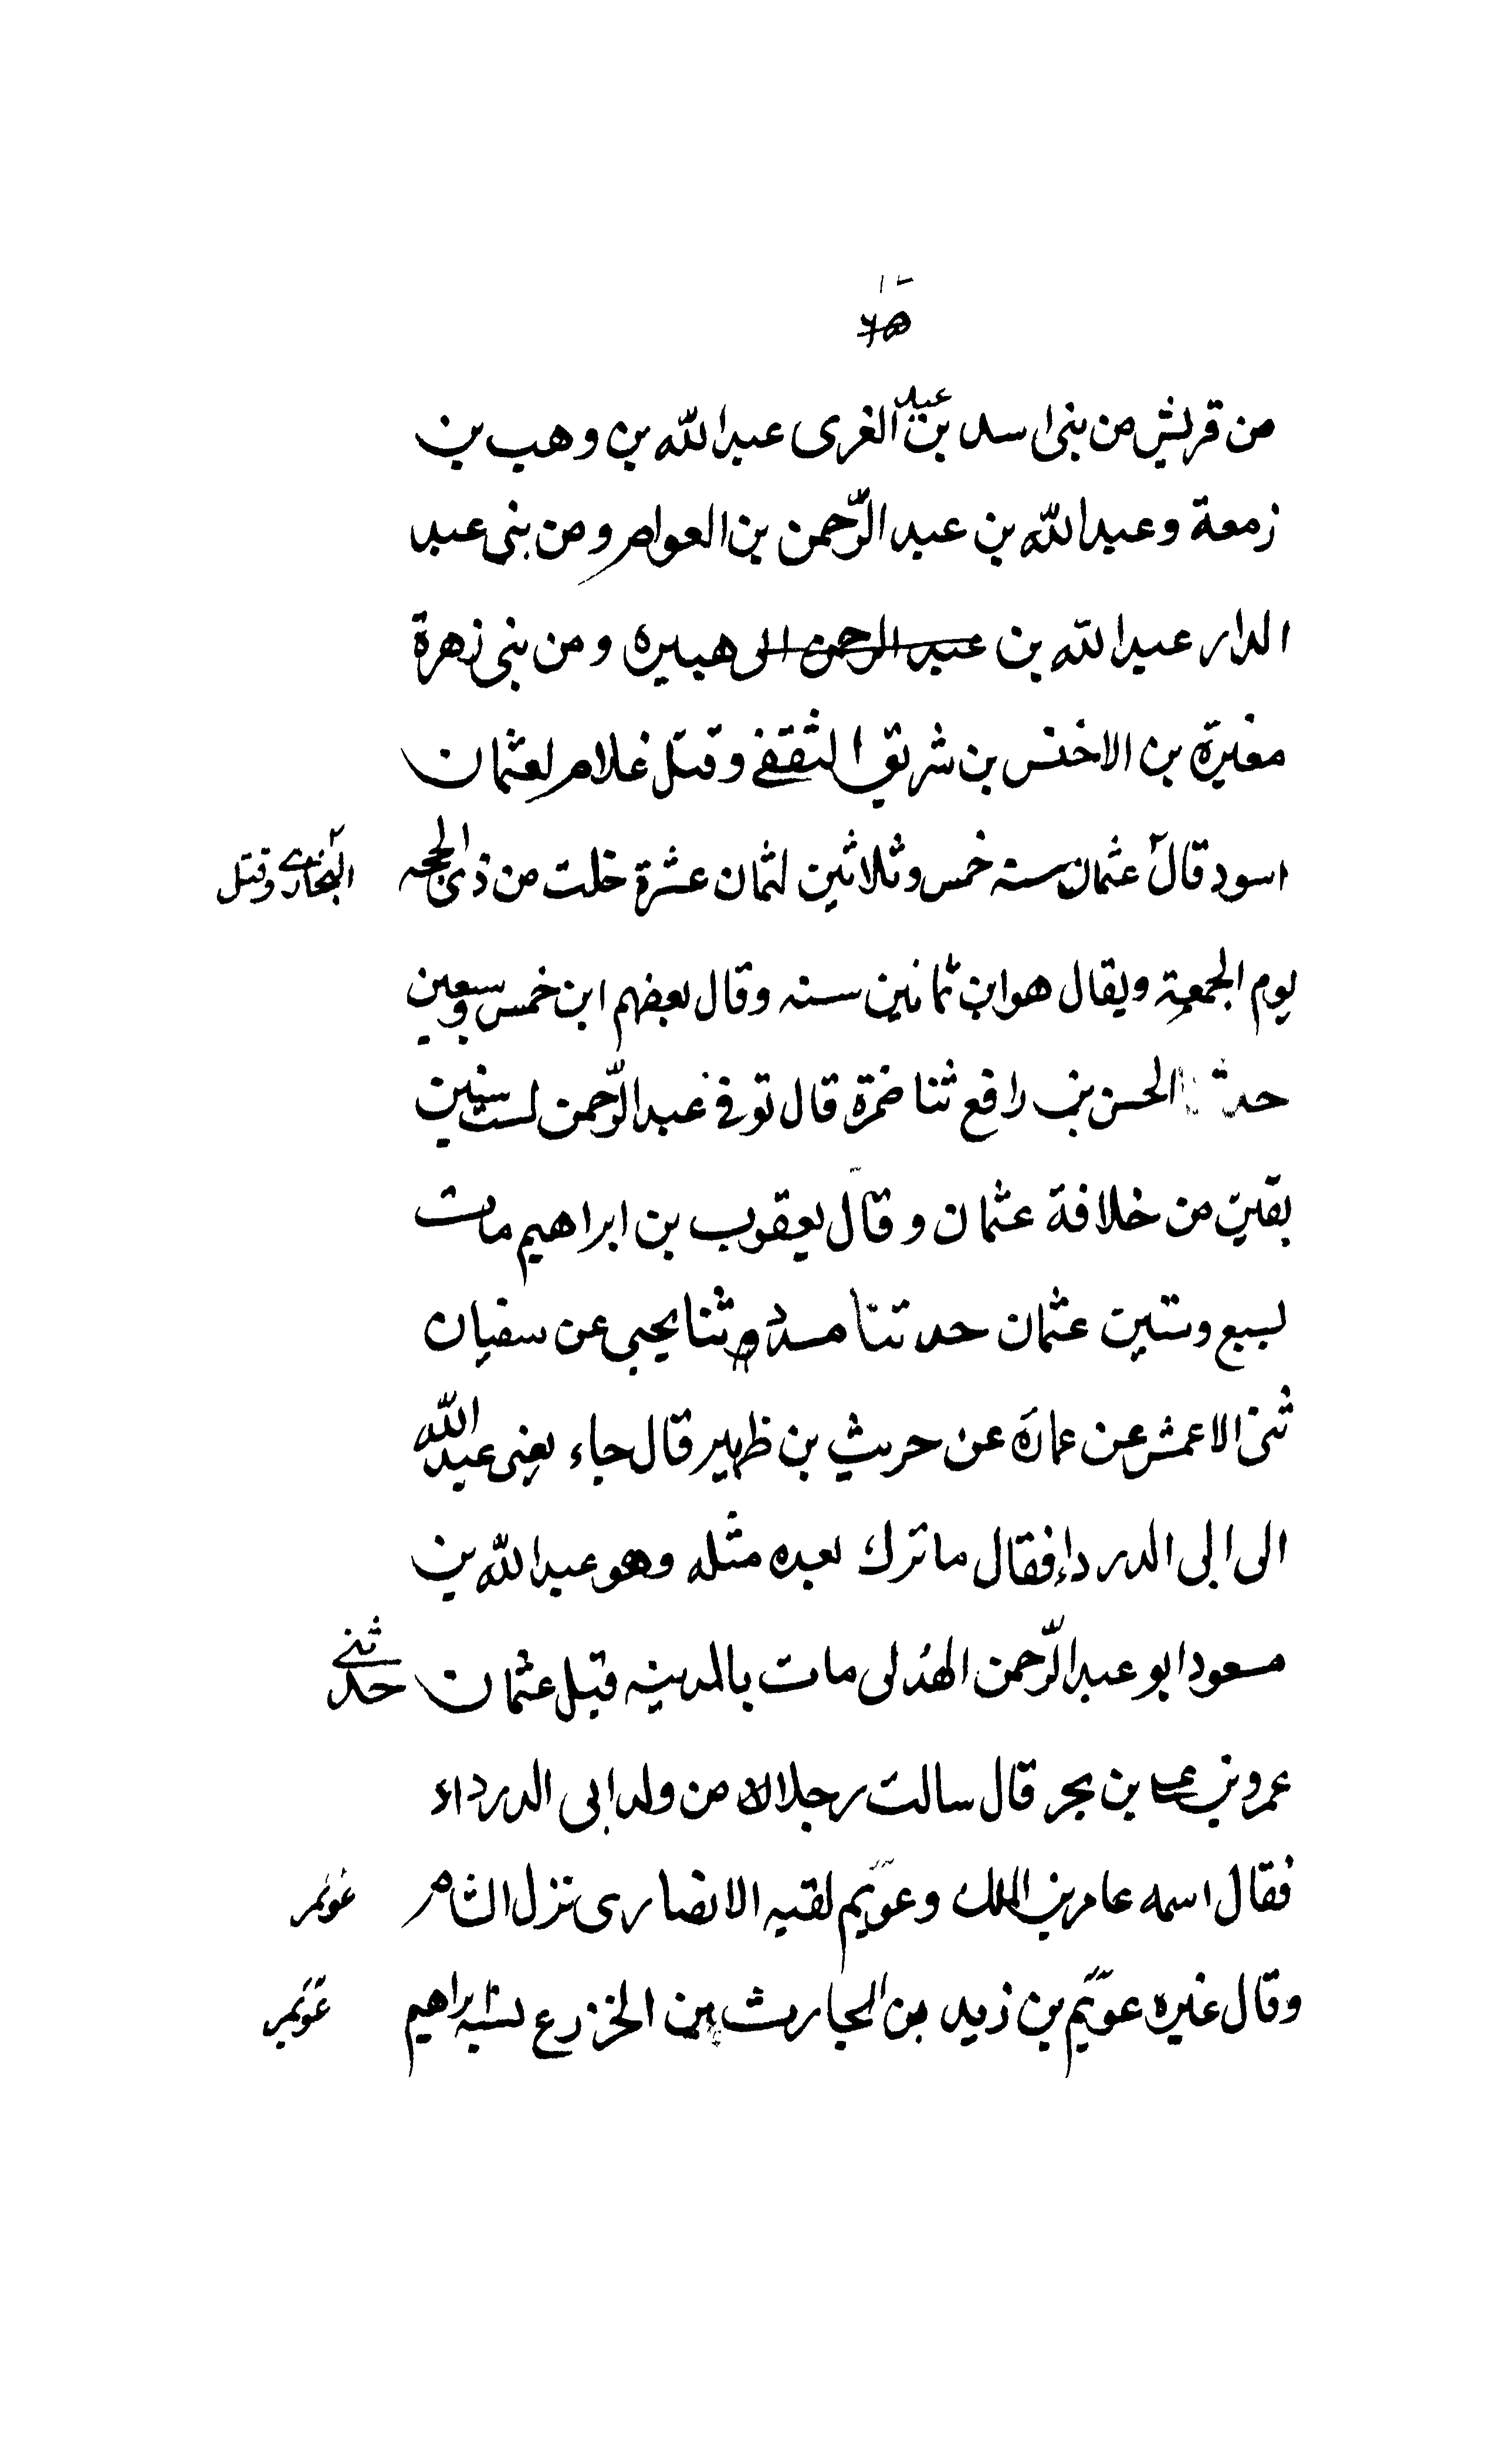 ٦٥
من قريش من بنى اسد بن عبد الغرى عبد الله بن وهب بن
زمعة وعبد الله بن عبد الرّحمن بن العوام ومن بنى عبد
الدار عبد الله بن عبد الرحمن الى هبيره ومن بنى زهرة
مغيرة بن الاخنس بن شريق الثقفي وقتل غلام لعثمان
اسود قال عثمان سنه خمس وثلاثين لثمان عشرة خلت من ذى الحجه
البخارى وقتل
يوم الجمعة ويقال هو ابن ثمانين سنه وقال بعضهم ابن خمس وسبعين
حدثنا الحسن بن رافع ثنا ضمرة قال توفى عبد الرّحمن لست سنين
بقين من خلافة عثمان وقال يعقوب بن ابراهيم مات
لسبع وستين عثمان حدثنا مسدد ثنا يحيى عن سفيان
ثنى الاعمش عن عمارة عن حريث بن ظهير قال جاء يعنى عبد الله
الى ابى الدرداء فقال ما ترك بعده مثله وهو عبد الله بن
مسعود ابو عبد الرّحمن الهذلى مات بالمدينه قبل عثمان حدثنى
عمرو بن بن بحر قال سالت رجلا من ولد ابى الدرداء
فقال اسمه عامر بن الملك وعويم لقبه الانصارى نزل الشام
عويمر
وقال غيره عويم بن زيد بن الحارث بن الخزرج لسبه ابراهيم
عويمر